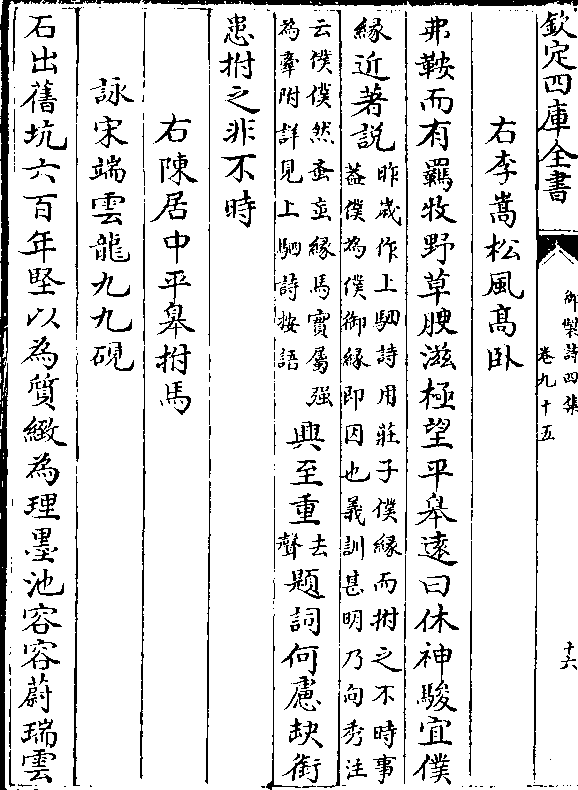 欽定四庫全書
御製詩四集
卷九十五
十六
右李嵩松風高卧
弗鞍而有羈牧野草腴滋極望平皋遠曰休神駿宜僕
緣近著說昨歲作上駟詩用莊子僕緣而拊之不時事
葢僕為僕御緣即因也義訓甚明乃向秀注
云僕僕然蚉䖟緣馬實屬强
為牽附詳見上駟詩按語
興至重去聲題詞何慮缺銜
患拊之非不時
右陳居中平皋拊馬
詠宋端雲龍九九硯
石出舊坑六百年堅以為質緻為理墨池容容蔚瑞雲